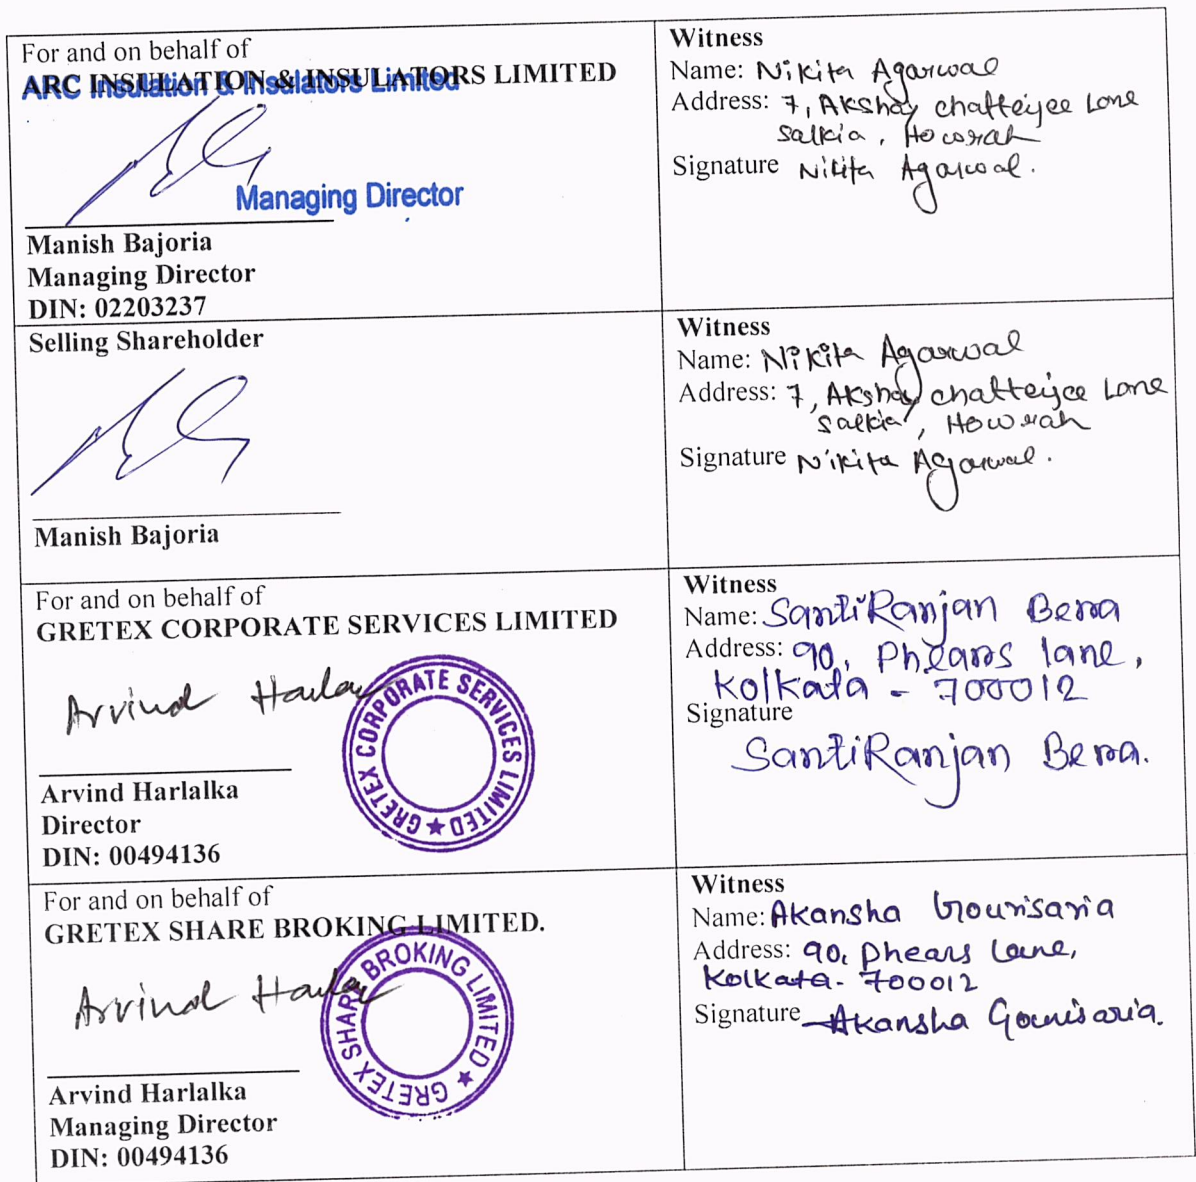 For and on behalf of
ARC INSULATION & INSULATORS LIMITED
ARC Insulation & Insulators Limited
Managing Director
Manish Bajoria
Managing Director
DIN: 02203237
Witness
Name: Nikita Agarwal
Address: 7, Akshay Chatterjee Lane
Salkia, Howrah
Signature Nikita Agarwal.
Selling Shareholder
Manish Bajoria
Witness
Name: Nikita Agarwal
Address: 7, Akshay Chatterjee Lane
Salkia, Howrah
Signature Nikita Agarwal.
For and on behalf of
GRETEX CORPORATE SERVICES LIMITED
Arvind Harlalka
GRETEX CORPORATE SERVICES LIMITED ★
Arvind Harlalka
Director
DIN: 00494136
Witness
Name: SantiRanjan Bera
Address: 90, Phears lane,
Kolkata - 700012
Signature
SantiRanjan Bera.
For and on behalf of
GRETEX SHARE BROKING LIMITED.
Arvind Harlalka
GRETEX SHARE BROKING LIMITED ★
Arvind Harlalka
Managing Director
DIN: 00494136
Witness
Name: Akansha Gourisaria
Address: 90, Phears Lane,
Kolkata - 700012
Signature Akansha Gourisaria.